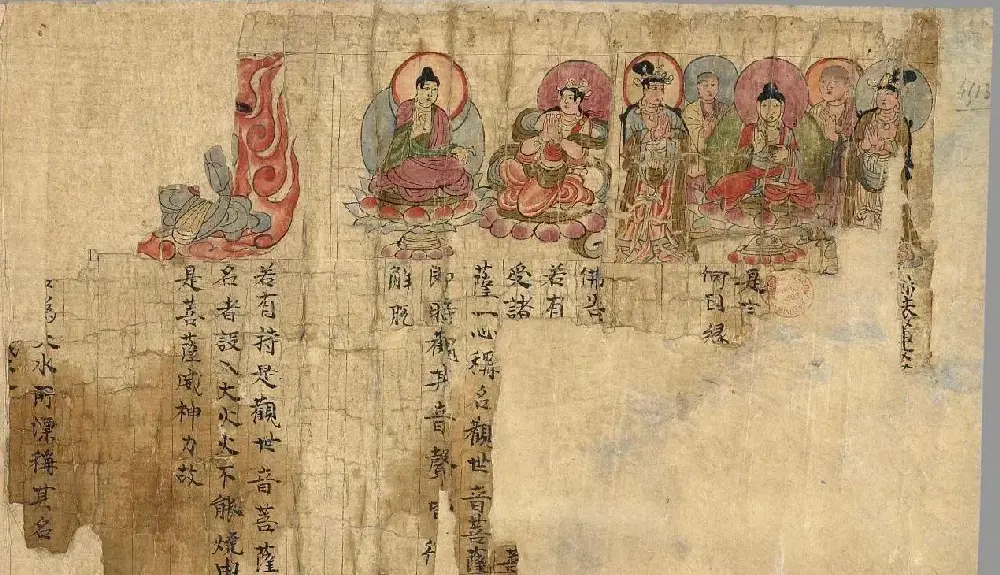 何因緣
佛告
若有
受諸 菩
薩一心稱名觀世音菩薩
即時觀其音聲
解脫
若有持是觀世音菩薩
名者設入大火火不能燒由
是菩薩威神力故
為大水所漂稱其名